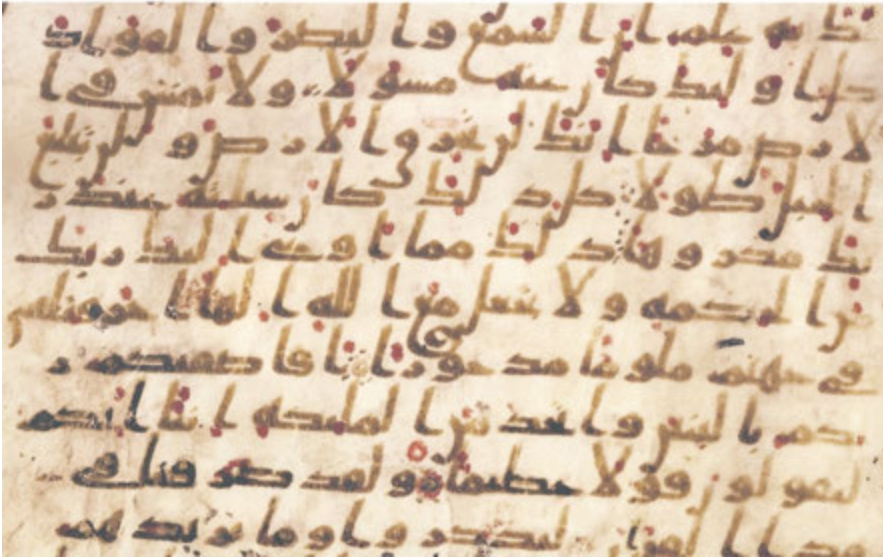 لك به علم ان السمع والبصر والفواد
كل اوليك كان عنه مسولا ولا تمش في ا
لارض مرحا انك لن تخرق الارض ولن تبلغ
الجبل طولا كل ذلك كان سييه عند ر
بك مكروها ذلك مما اوحى اليك ربك
من الحكمه ولا تجعل مع الله الها اخر فتلقى
في جهنم ملوما مدحورا افاصفيكم ر
بكم بالبنين واتخذ من المليكه انثا انكم
لتقولون قولا عظيما ولقد صرفنا في
هذا القران ليذكروا وما يزيدهم